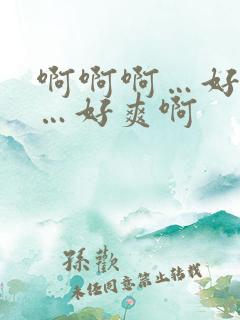 啊啊啊…好
…好爽啊
孫歡
未经同意禁止转载